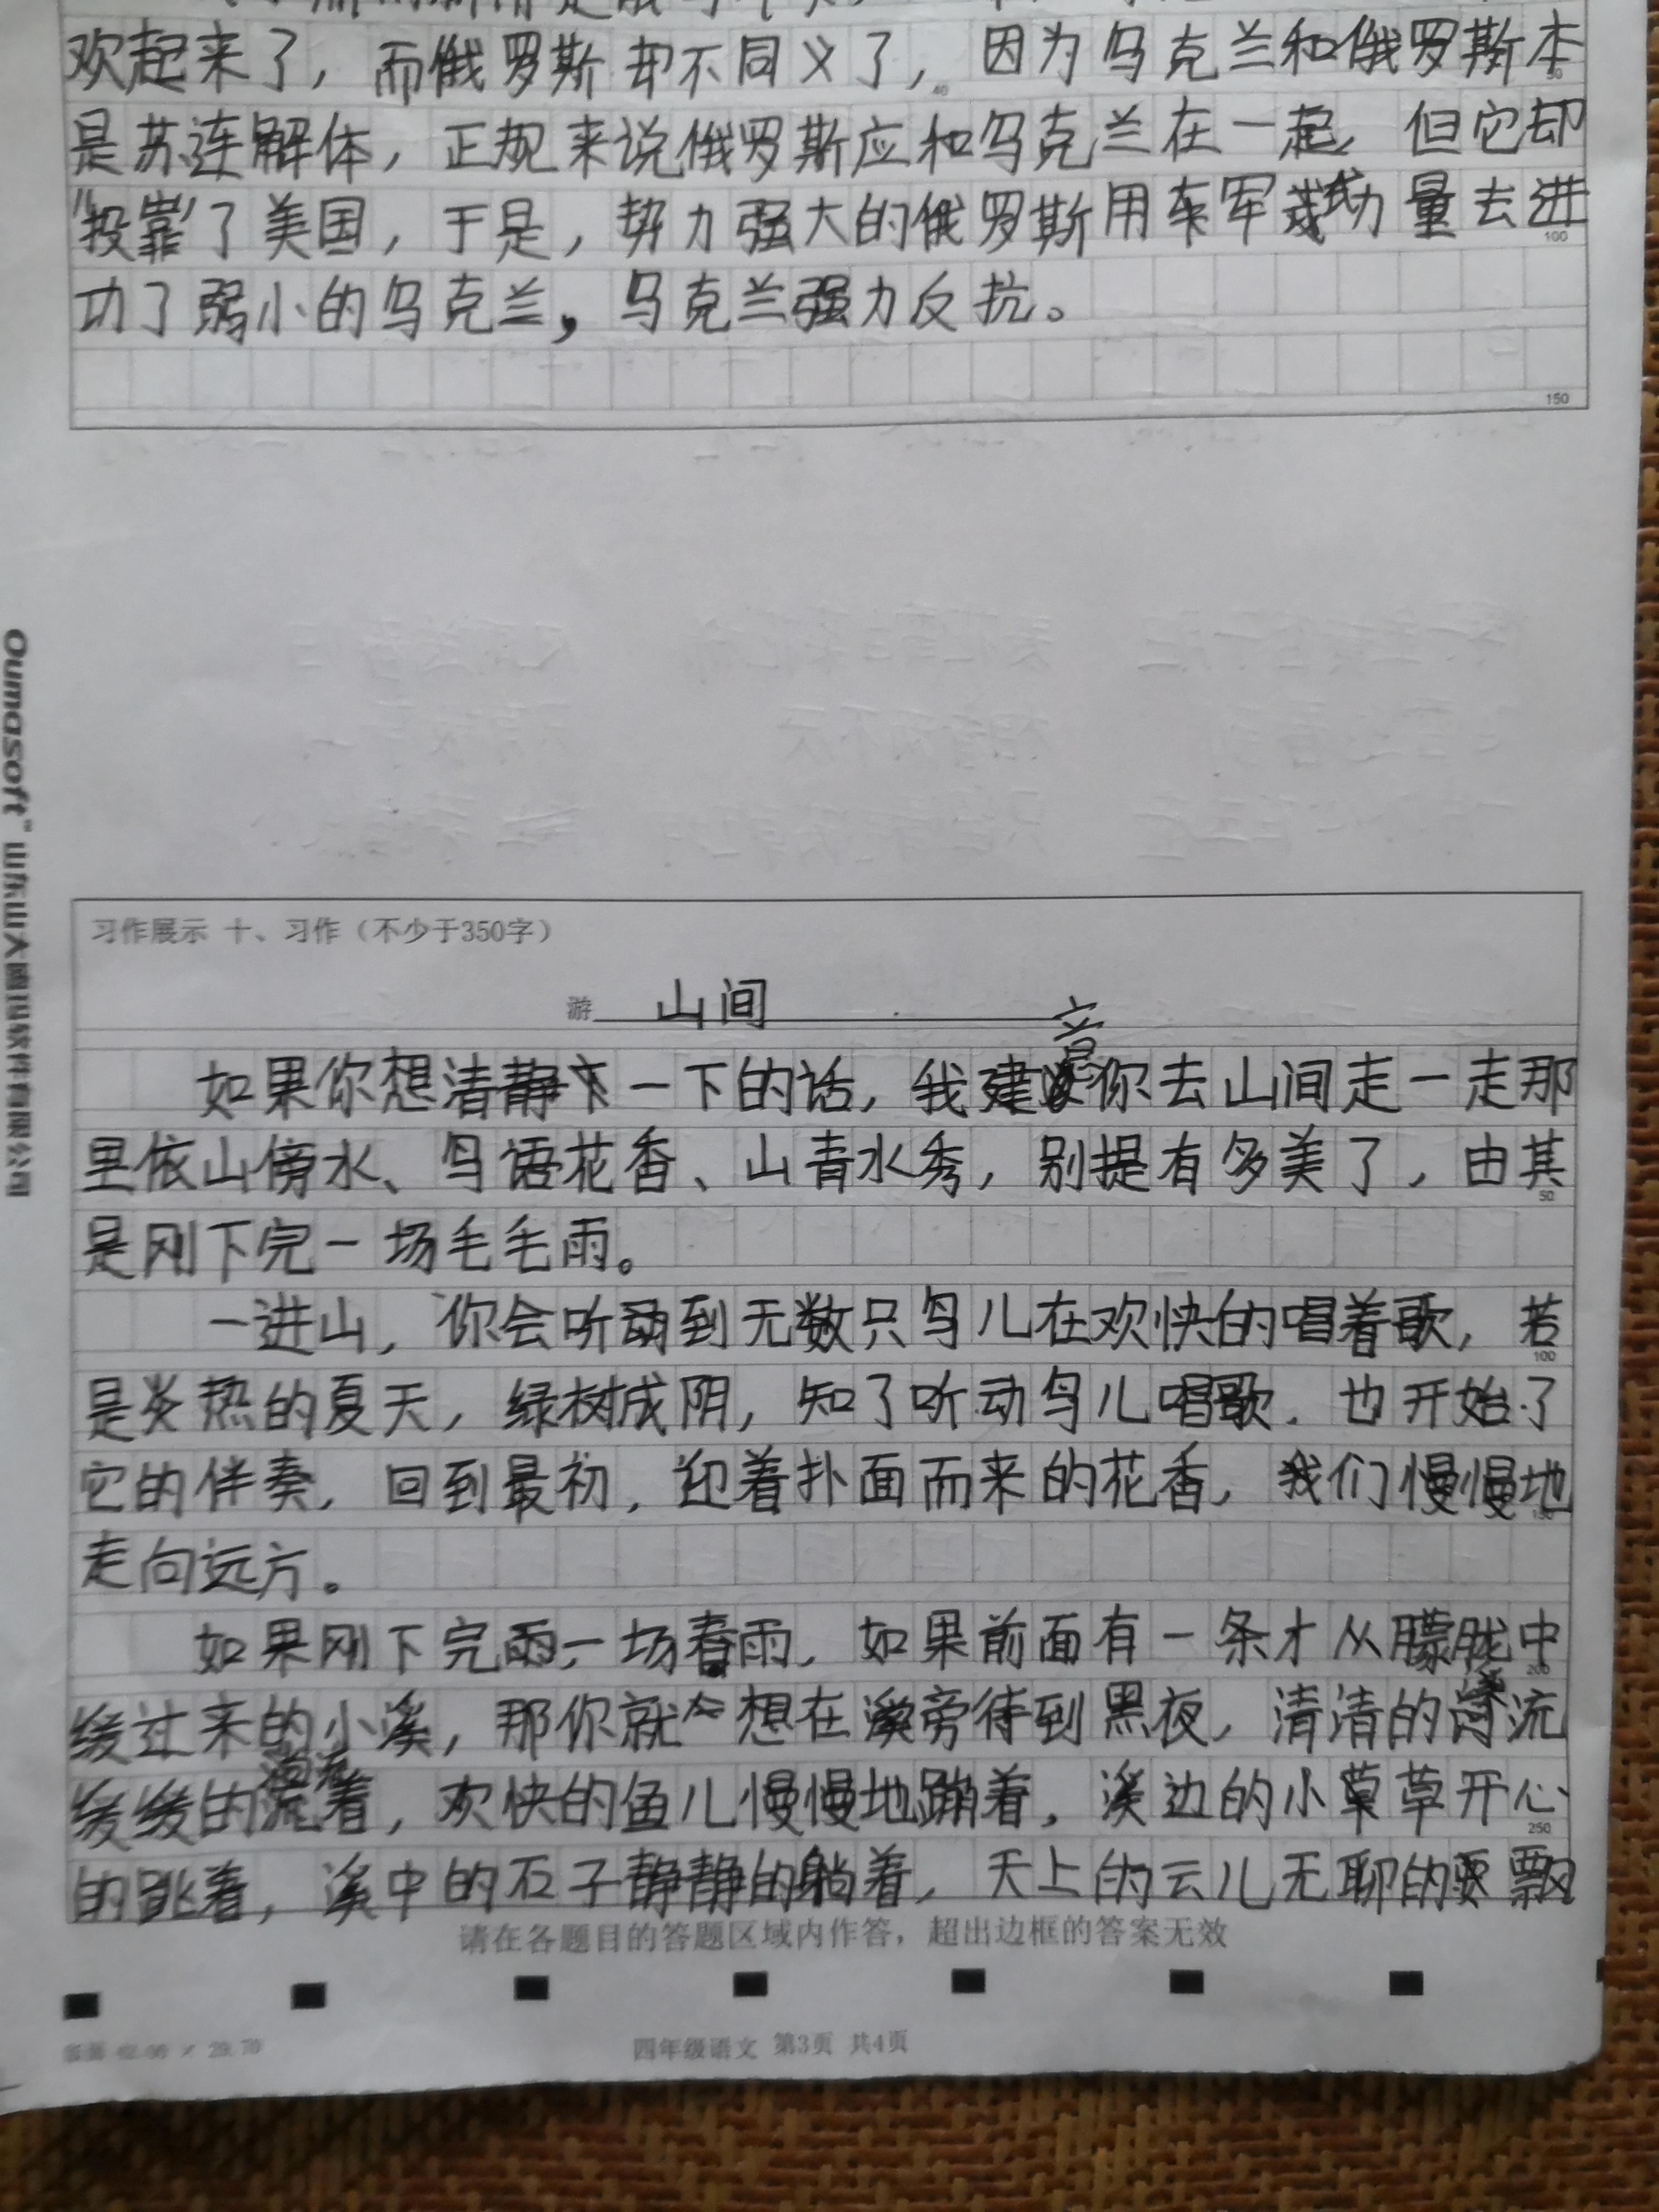 欢起来了，而俄罗斯却不同义了，因为乌克兰和俄罗斯本
40
50
是苏连解体，正规来说俄罗斯应和乌克兰在一起，但它却
"投靠"了美国，于是，势力强大的俄罗斯用军力量去进
100
功了弱小的乌克兰，乌克兰强力反抗。
150
Oumasoft 山东山大鸥玛软件有限公司
习作展示 十、习作（不少于350字）
游 山间
如果你想清静一下的话，我建意你去山间走一走那
里依山傍水、鸟语花香、山青水秀，别提有多美了，由其
50
是刚下完一场毛毛雨。
一进山，你会听到无数只鸟儿在欢快的唱着歌，若
100
是炎热的夏天，绿树成阴，知了听动鸟儿唱歌，也开始了
它的伴奏，回到最初，迎着扑面而来的花香，我们慢慢地
150
走向远方。
如果刚下完一场春雨，如果前面有一条才从朦胧中
200
缓过来的小溪，那你就会想在溪旁待到黑夜，清清的溪流
缓缓的流着，欢快的鱼儿慢慢地蹦着，溪边的小草草开心
250
的跳着，溪中的石子静静的躺着，天上的云儿无聊的飘
请在各题目的答题区域内作答，超出边框的答案无效
四年级语文 第3页 共4页